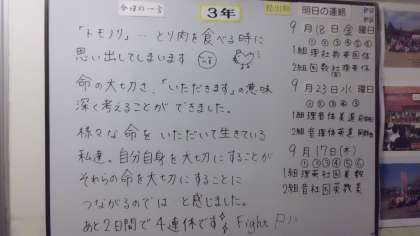 今日の一言
3年
提出物
明日の連絡
「トモノリ」… とり肉を食べる時に
思い出してしまいます
命の大切さ、「いただきます」の意味
深く考えることが できました。
様々な 命を いただいて生きている
私達。自分自身を大切にすることが
それらの命を大切にすることに
つながるのでは と感じました。
あと2日間で 4連休です Fight
9月18日 金 曜日
① ② ③ ④ ⑤ ⑥
1組 理社数英国体
2組 国数社理英体
9月23日 水 曜日
① ② ③ ④ ⑤ ⑥
1組 理音体英道
2組 音理体英道
9月17日(木)
① ② ③ ④ ⑤ ⑥
1組 理英社国英数
2組 音社国英数英